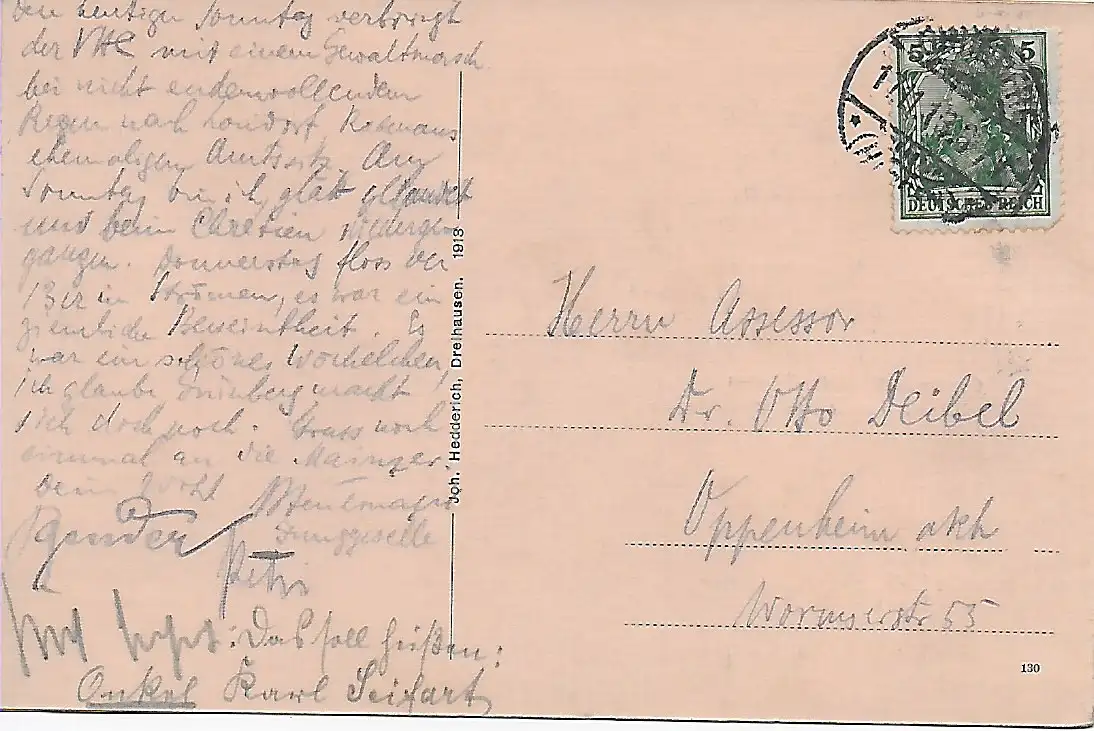 den heutigen Sonntag verbringt
der VHC mit einem Gewaltmarsch
bei nicht endenwollendem
Regen nach Londorf,
ehemaligen Amtssitz. Am
Sonntag bin ich glatt gelandet
und beim Chretien niederge
gangen. Donnerstag floss der
in Strömen, es war ein
ziemliche
war ein schönes Wöchelchen,
ich glaube Grünberg macht
sich doch noch. Gruss noch
einmal an die Mainzer.
Dein
Junggeselle
Petri
: Das soll heißen:
Onkel Karl Seifart
Joh. Hedderich, Dreihausen. 1913
5 5
DEUTSCHES REICH
Herrn Assessor
Dr. Otto Deibel
Oppenheim a/rh
Wormserstr 55
130